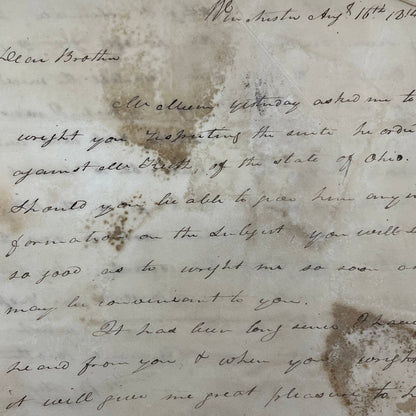 Winchester Augt 16th 184
Dear Brother
Mr yesterday asked me to
wright you respecting the suite he order
against Mr of the state of Ohio.
Should you be able to give him any in
formation on the Subject you will be
so good as to wright me so soon as
may be convenient to you.
It has been long since I have
heard from you & when you wright
it will give me great pleasure to